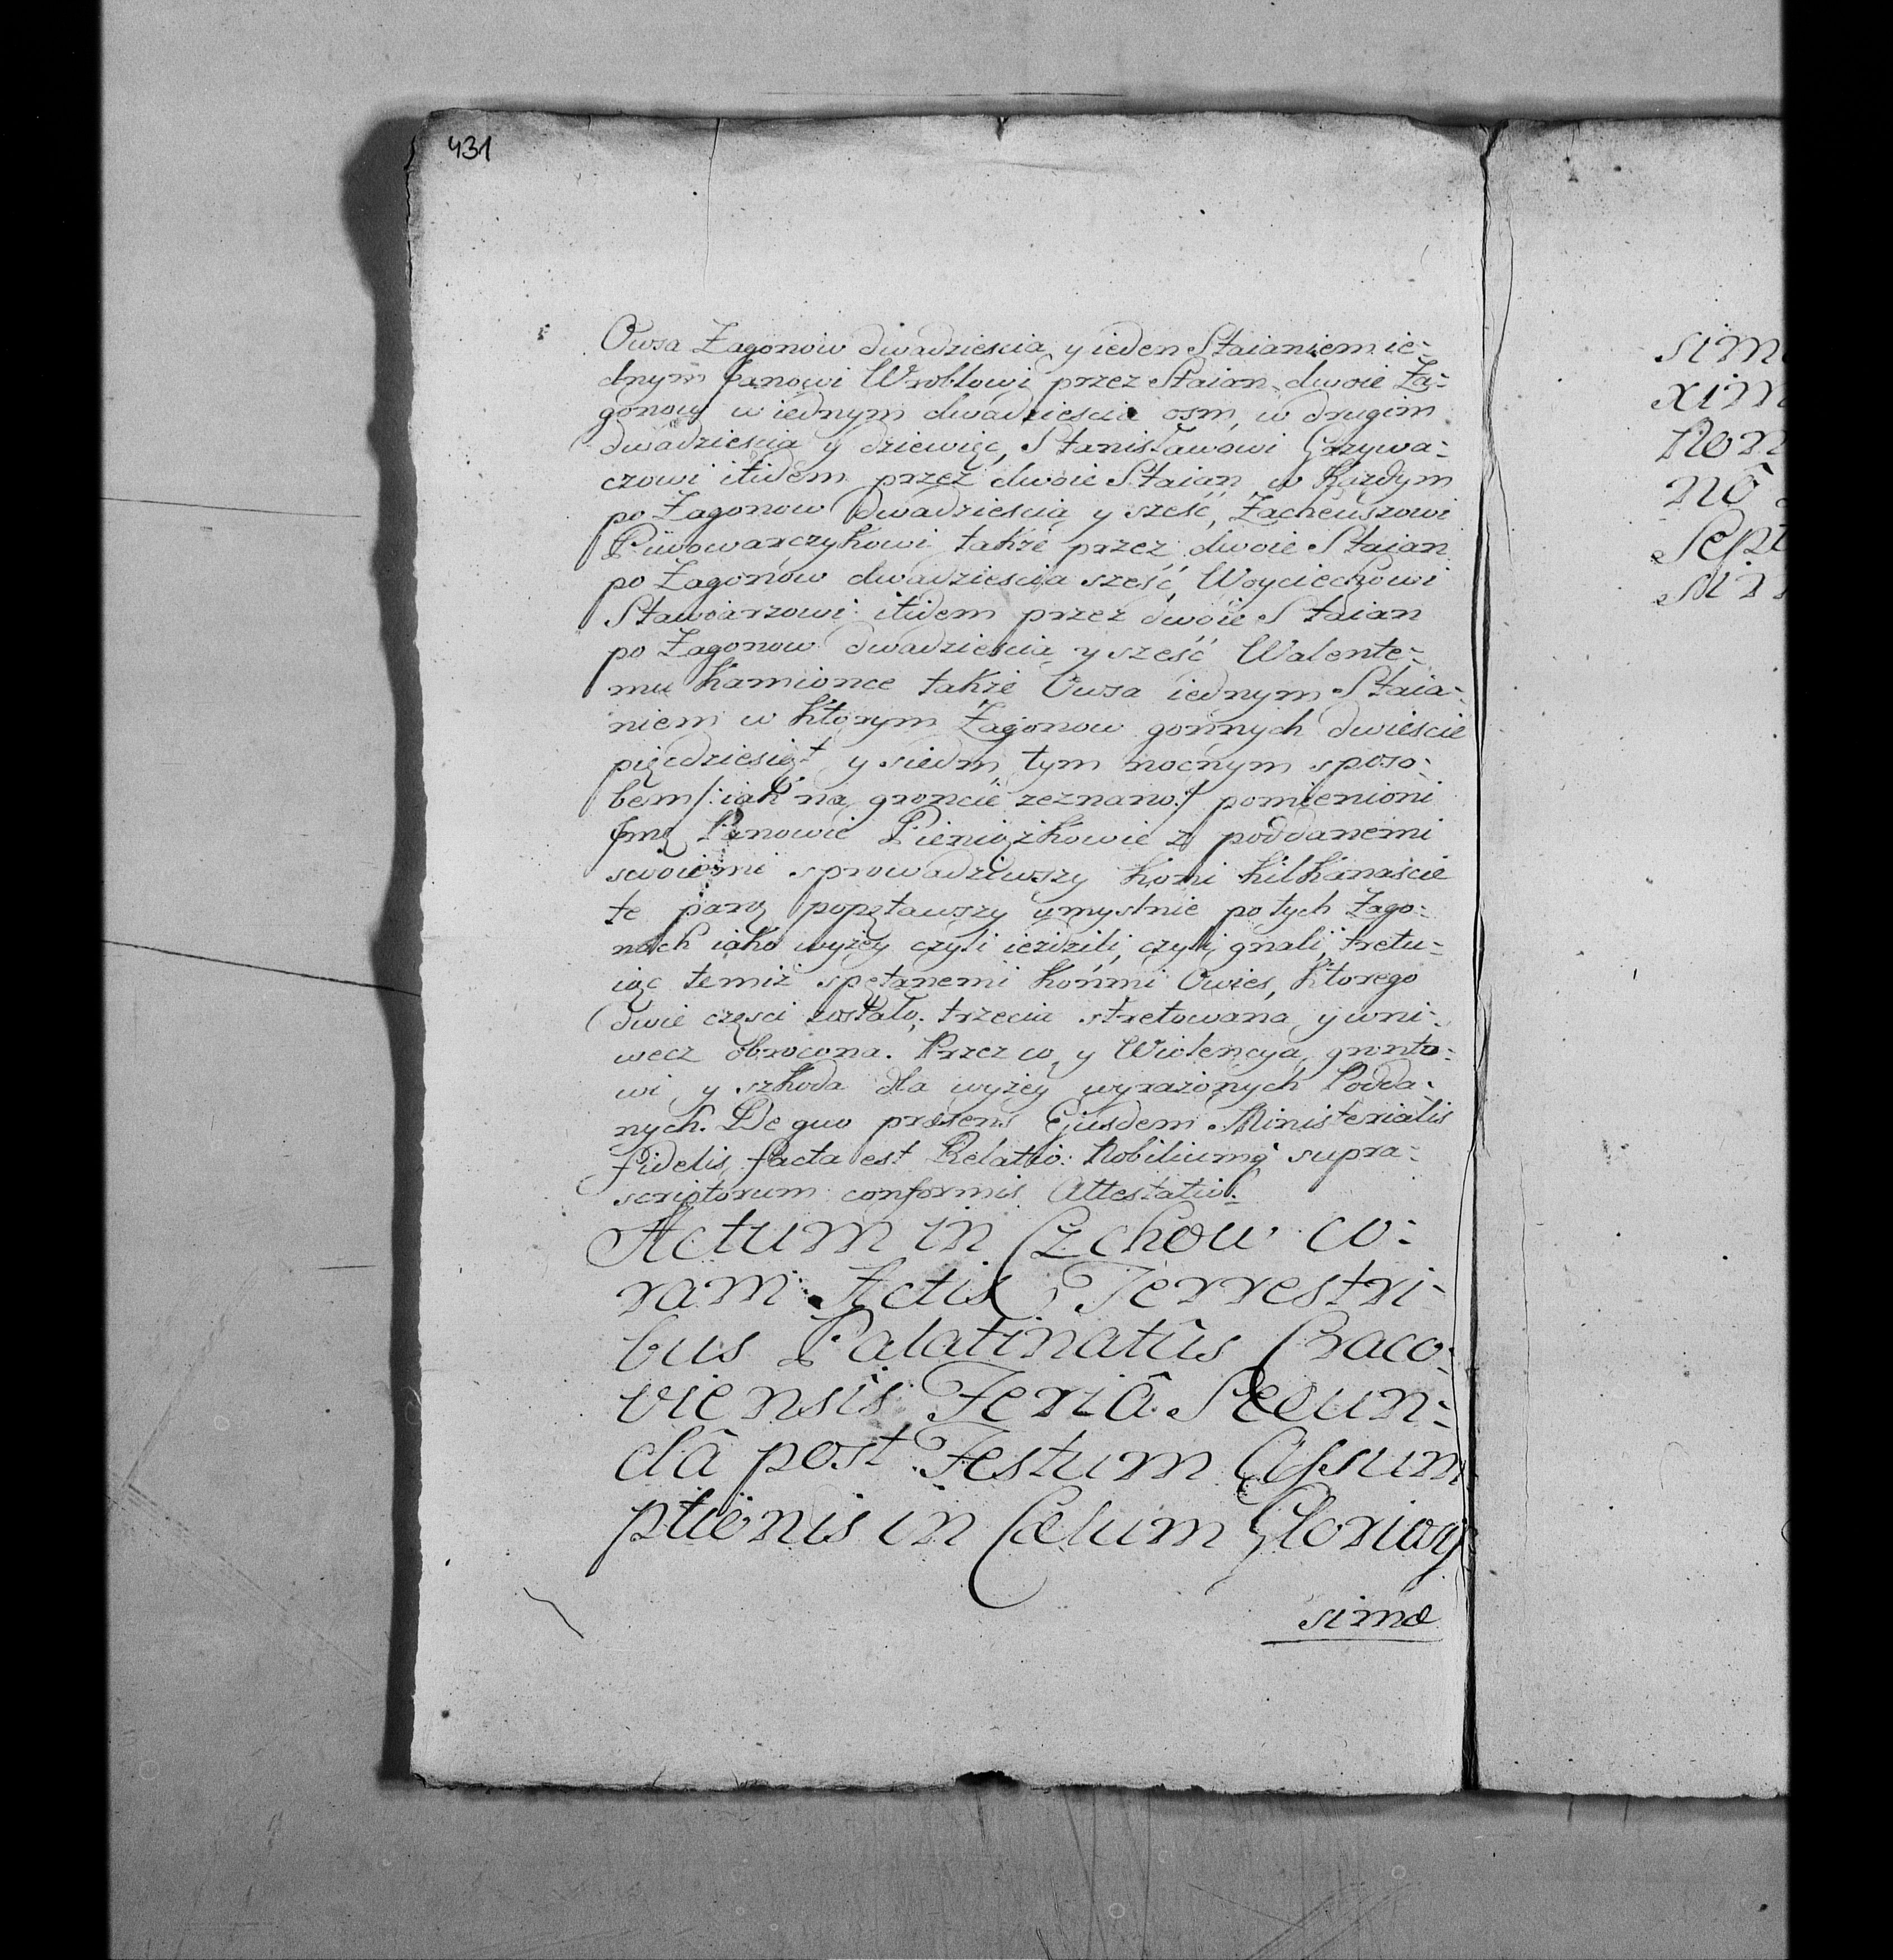 431
Owsa Zagonow dwadziescia y ieden Staianiem ie-
dnym Janowi Wroblowi przez Staian dwoie Za-
gonow w iednym dwadziescia osm, w drugim
dwadziescia y dziewięc, Stanisławowi Grzywa-
czowi itidem przez dwoie Staian w Kazdym
po Zagonow dwadziescia y sześć, Zacheuszowi
Piwowarczykowi także przez dwoie Staian
po Zagonow dwadziescia sześć, Woyciechowi
Stawiarzowi itidem przez dwoie Staian
po Zagonow dwadziescia y sześć Walente-
mu Kamionce także Owsa iednym Staia-
niem w ktorym Zagonow gonnych dwieście
pięcdziesiąt y siedm, tym mocnym sposo-
bem /: iak na groncie zeznano :/ pomienioni
Jmę Panowie Pieniązkowie z poddanemi
swoiemi sprowadziwszy koni kilkanaście
te parą popętawszy umyslnie po tych Zago-
nach iako wyżey czyli ieździli, czyli gnali, tretu-
iąc temiż spętanemi końmi Owies, ktorego
dwie częsci zostało, trzecia stretowana y wni-
wecz obrocona. Przez co y Wiolencya gronto-
wi y szkoda dla wyżey wyrażonych Podda-
nych. De quo præsens Ejusdem Ministerialis
fidelis facta est Relatio. Nobiliumq; supra-
scriptorum conformis Attestatio.
Actum in Czchow co-
ram Actis Terrestri-
bus Palatinatûs Craco-
viensis Feriâ Secun-
dâ post Festum Assum-
ptionis in Cælum Glorios-
simæ
sim
xim
Non
nô
Sept